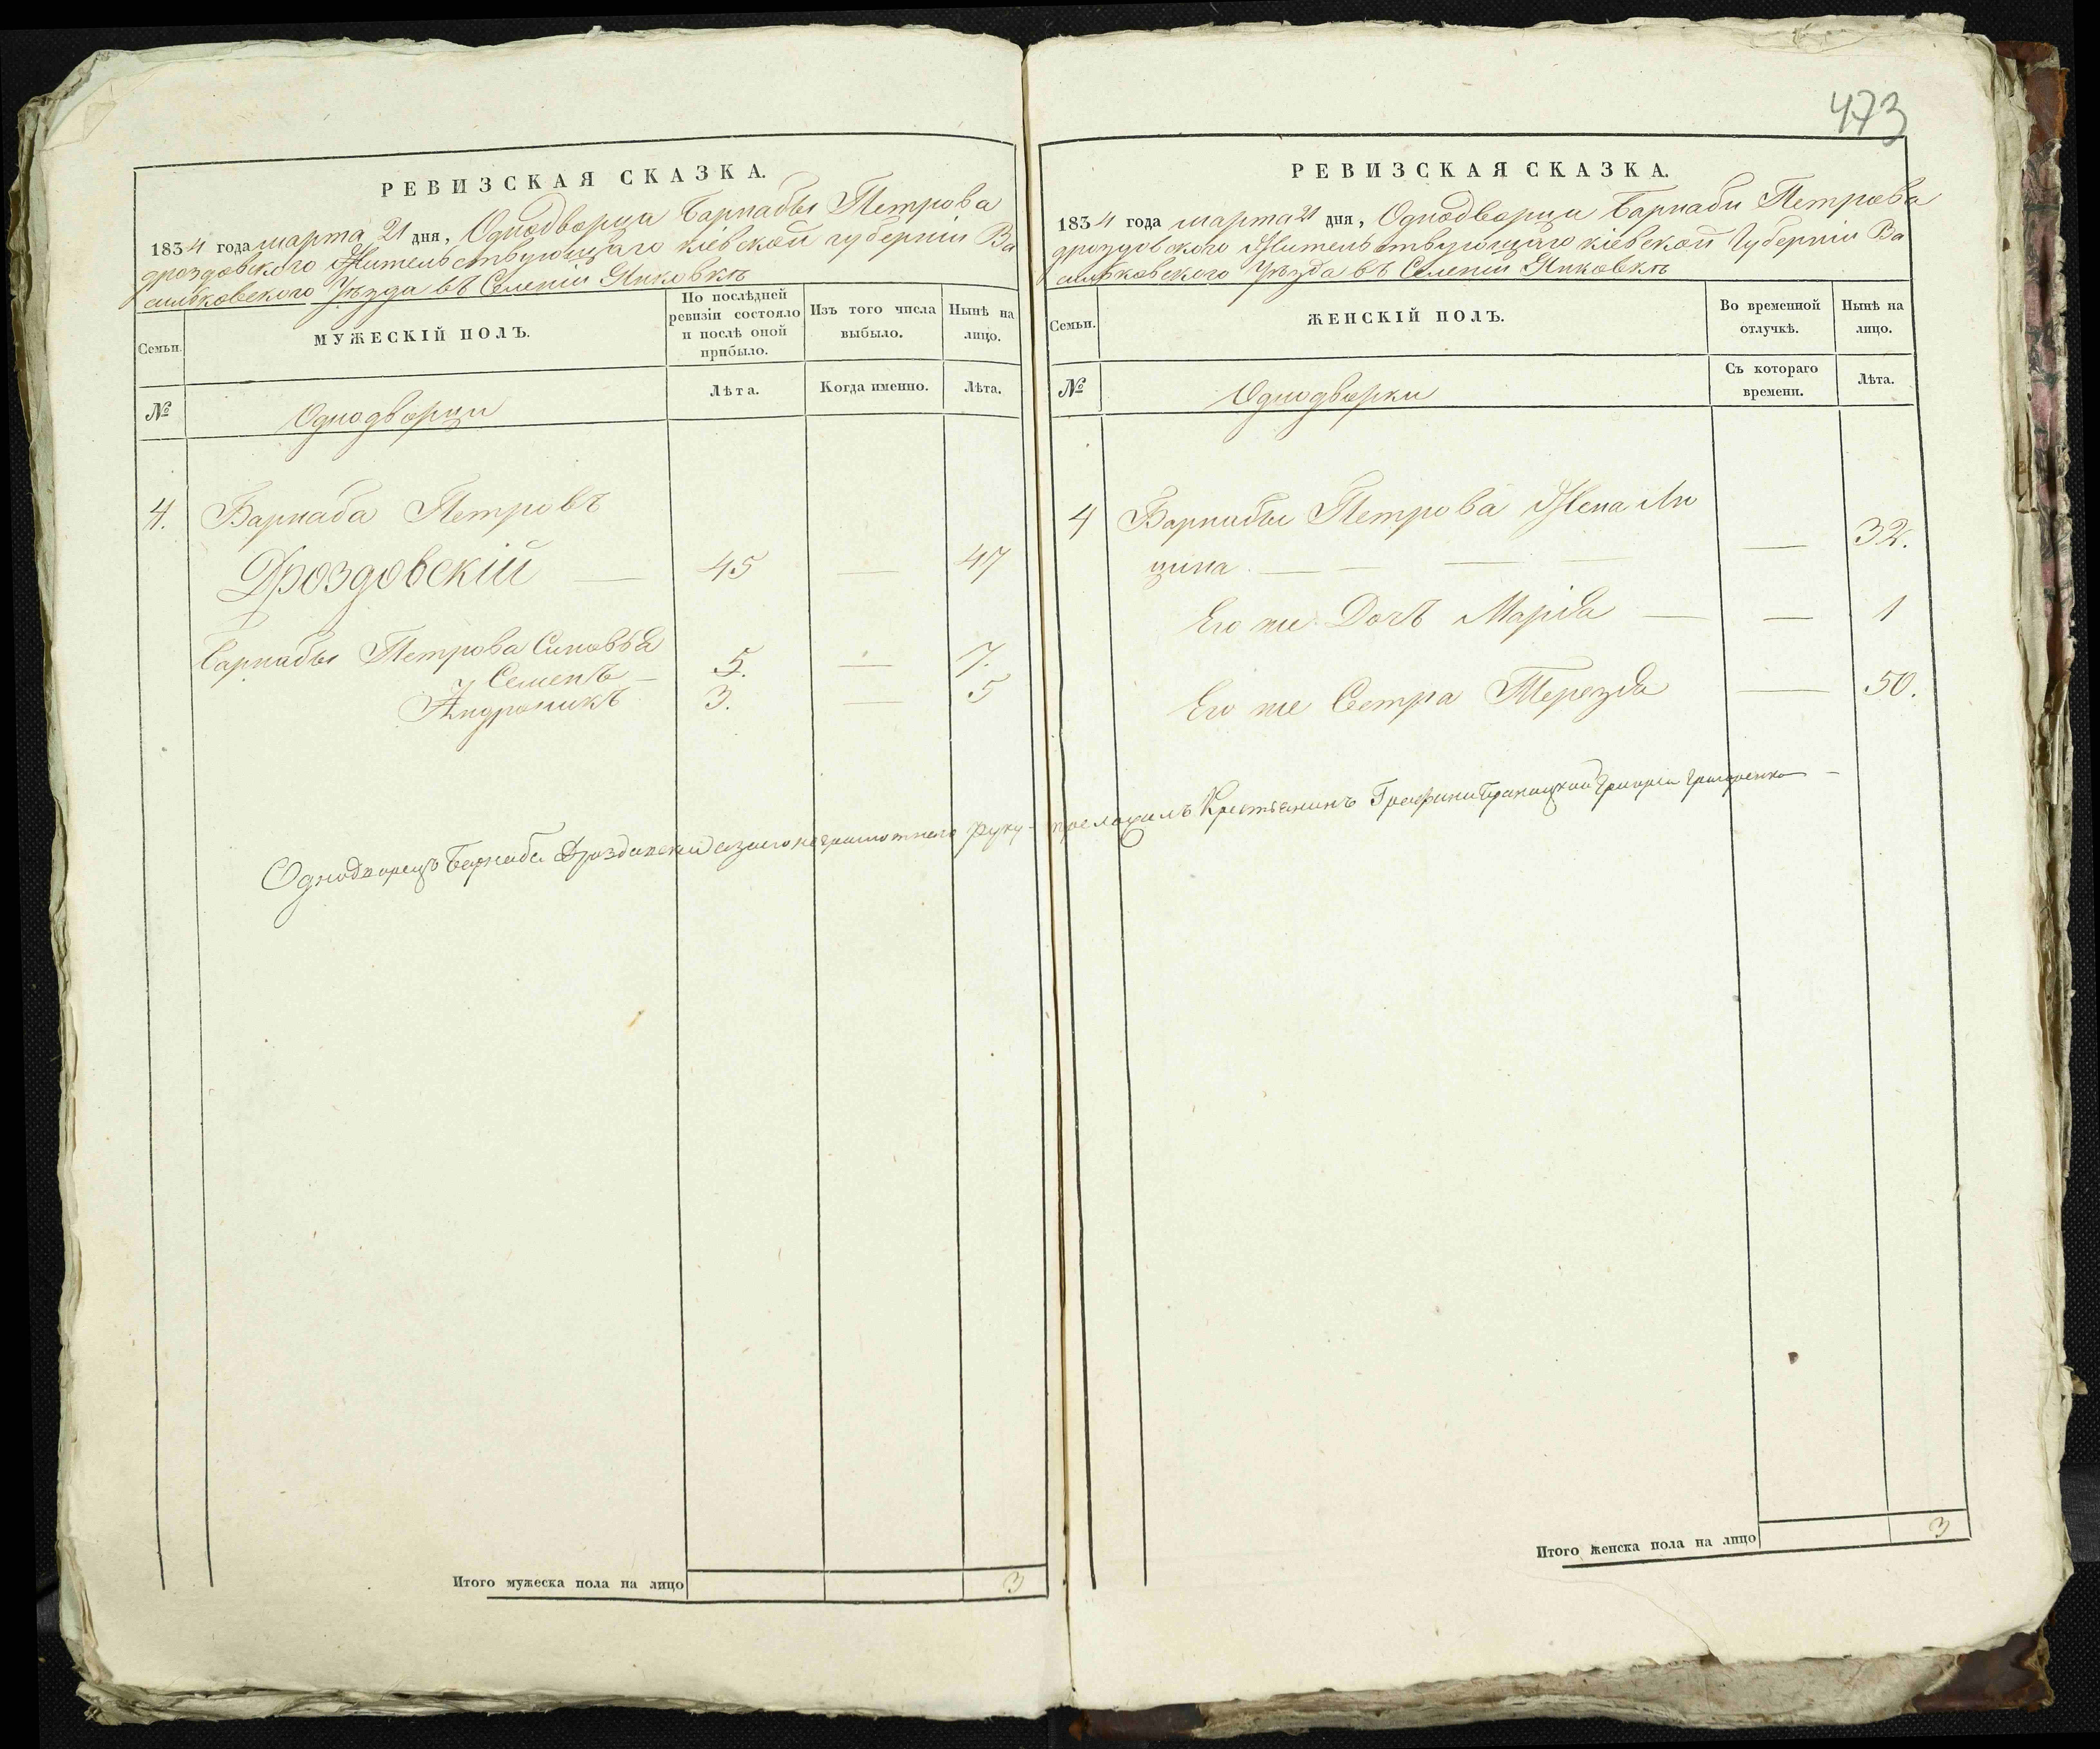 473
РЕВИЗСКАЯ СКАЗКА.
1834 года марта 21 дня, Однодворца Барнабы Петрова
дроздовского Жительствующаго кіевской губерніи Ва
сильковского Уѣзда въ Селеніи Янковкѣ
Семьи.
МУЖЕСКІЙ ПОЛЪ.
По послѣдней
ревизіи состояло
и послѣ оной
прибыло.
Изъ того числа
выбыло.
Нынѣ на
лицо.
№
Однодворци
Лѣта.
Когда именно.
Лѣта.
4. Барнаба Петровъ
Дроздовскій — 45 — 47
Барнабы Петрова Синовья
Семенъ — 5. — 7.
Андроникъ 3. — 5
Однодворецъ Барнаба Дроздовски азаего неграмотного руку
Итого мужеска пола на лицо 3
РЕВИЗСКАЯ СКАЗКА.
1834 года марта 21 дня, Однодворца Барнаби Петрова
дроздовского Жительствующаго кіевской Губерніи Ва
сильковского Уѣзда въ Селеніи Янковкѣ
Семьи.
ЖЕНСКІЙ ПОЛЪ.
Во временной
отлучкѣ.
Нынѣ на
лицо.
№
Однодворки
Съ котораго
времени.
Лѣта.
4 Барнабы Петрова Жена Лю
цина — — — — — 32.
Его же Дочъ Марія — — 1
Его же Сестра Терезя — 50.
приложилъ Крестьянинъ Графини Браницкой Григори
Итого женска пола на лицо 3